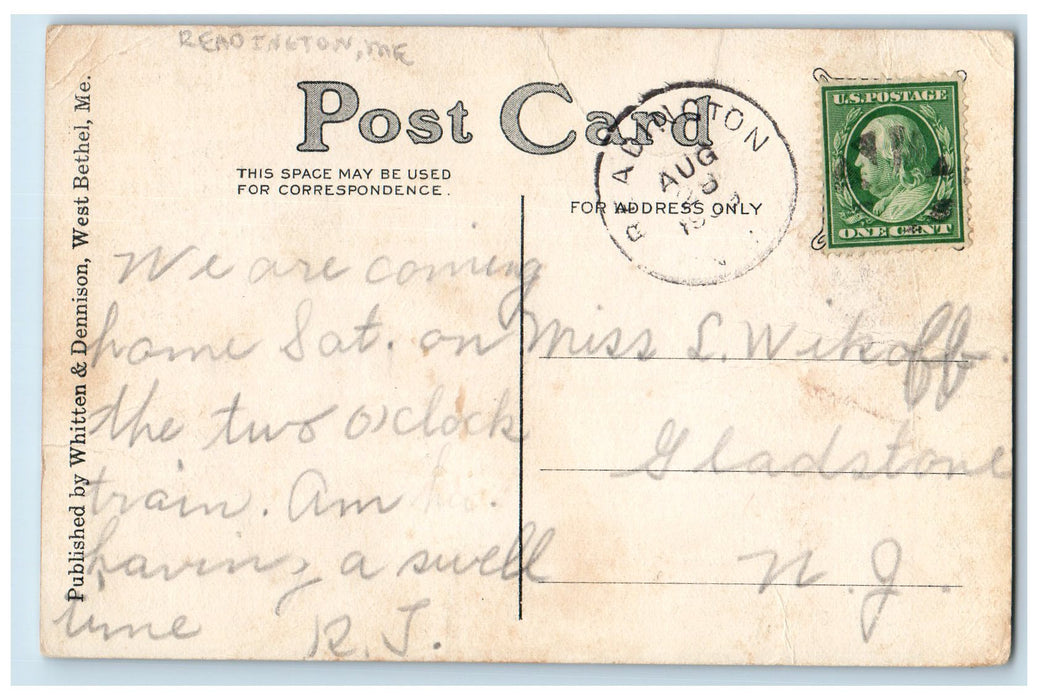 READINGTON, ME
Post Card
THIS SPACE MAY BE USED
FOR CORRESPONDENCE.
FOR ADDRESS ONLY
Published by Whitten & Dennison, West Bethel, Me.
READINGTON
AUG
U.S.POSTAGE
ONE CENT
We are coming
home Sat. on
the two o'clock
train. Am
having a swell
time
R. J.
Miss L. Wikoff.
Gladstone
N. J.